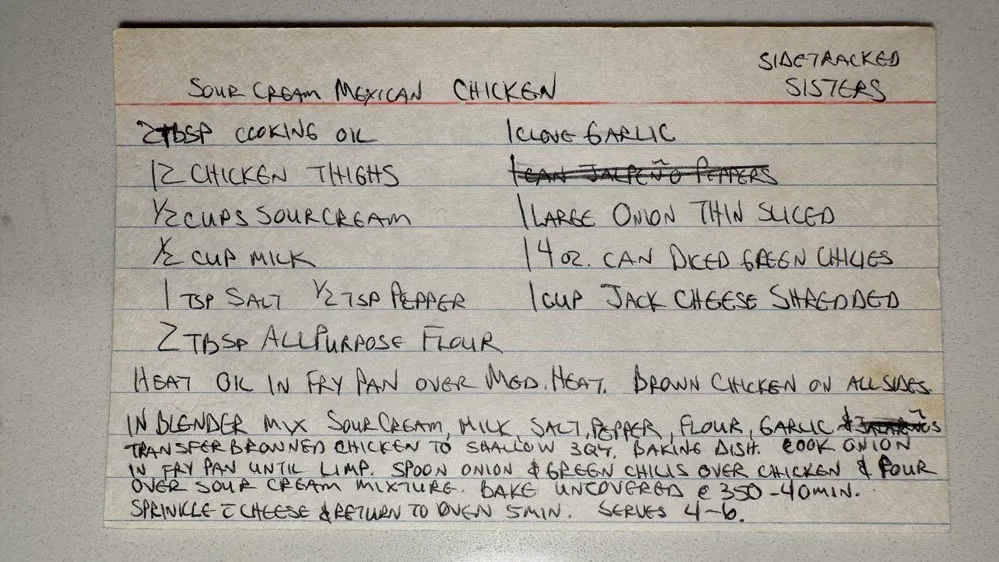 SIDETRACKED
SISTERS
SOUR CREAM MEXICAN CHICKEN
2 TBSP COOKING OIL
12 CHICKEN THIGHS
1/2 CUPS SOUR CREAM
1/2 CUP MILK
1 TSP SALT 1/2 TSP PEPPER
2 TBSP ALL PURPOSE FLOUR
1 CLOVE GARLIC
1 CAN JALPEÑO PEPPERS
1 LARGE ONION THIN SLICED
1 4 OZ. CAN DICED GREEN CHILIES
1 CUP JACK CHEESE SHREDDED
HEAT OIL IN FRY PAN OVER MED. HEAT. BROWN CHICKEN ON ALL SIDES.
IN BLENDER MIX SOUR CREAM, MILK SALT, PEPPER, FLOUR, GARLIC &
TRANSFER BROWNED CHICKEN TO SHALLOW 3QT. BAKING DISH. COOK ONION
IN FRY PAN UNTIL LIMP. SPOON ONION & GREEN CHILIS OVER CHICKEN & POUR
OVER SOUR CREAM MIXTURE. BAKE UNCOVERED @ 350 - 40 MIN.
SPRINKLE C CHEESE & RETURN TO OVEN 5 MIN. SERVES 4-6.